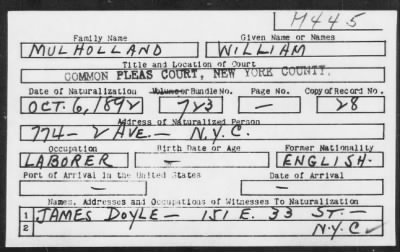 M445
Family Name Given Name or Names
MULHOLLAND WILLIAM
Title and Location of Court
COMMON PLEAS COURT, NEW YORK COUNTY.
Date of Naturalization Volume or Bundle No. Page No. Copy of Record No.
OCT. 6, 1892 723 — 28
Address of Naturalized Person
774 - 2 AVE. - N.Y.C.
Occupation Birth Date or Age Former Nationality
LABORER — ENGLISH.
Port of Arrival in the United States Date of Arrival
— —
Names, Addresses and Occupations of Witnesses To Naturalization
1 JAMES DOYLE - 151 E. 33 ST. -
2 N.Y.C.